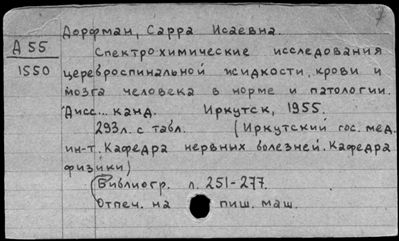 Дорфман, Сарра Исаевна.
А 55
1550
Спектрохимические исследования
цереброспинальной жидкости, крови и
мозга человека в норме и патологии.
Дисс... канд. Иркутск, 1955.
293л. с табл. (Иркутский гос. мед.
ин-т. Кафедра нервных болезней. Кафедра
физики)
Библиогр. л. 251-277.
Отпеч. на пиш. маш.